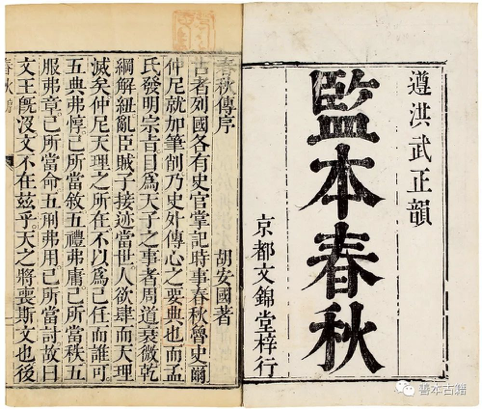 遵洪武正韻
監本春秋
京都文錦堂梓行
春秋傳序
胡安國著
古者列國各有史官掌記時事春秋魯史爾
仲尼就加筆削乃史外傳心之要典也而孟
氏發明宗旨目爲天子之事者周道衰微乾
綱解紐亂臣賊子接迹當世人欲肆而天理
滅矣仲尼天理之所在不以爲己任而誰可
五典弗惇己所當敘五禮弗庸己所當秩五
服弗章己所當命五刑弗用己所當討故曰
文王旣沒文不在茲乎天之將喪斯文也後
春秋
善本古籍